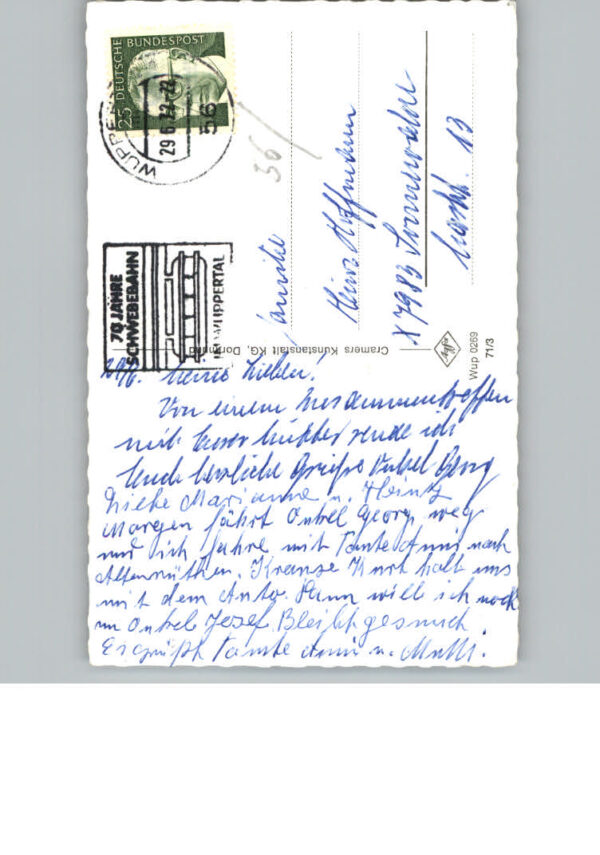 25 DEUTSCHE BUNDESPOST
WUPPE
29.6.
56
36
70 JAHRE
SCHWEBEBAHN
WUPPERTAL
Cramers Kunstanstalt KG, Dortmund
Wup 0269
71/3
Familie
Heinz Hoffmann
X 7983 Sonnewalde
13
29/6. Meine Lieben!
Von einem Zusammentreffen
mit Eurer Mutter sende ich
Euch herzliche Grüße Onkel Georg
Liebe Marianne u. Heintz
Morgen fährt Onkel Georg weg
und ich fahre mit Tante Anni nach
Altenrüthen. Krause Kurt holt uns
mit dem Auto. Dann will ich noch
zu Onkel Josef. Bleibt gesund
Es grüßt Tante Anni u. Mutti.